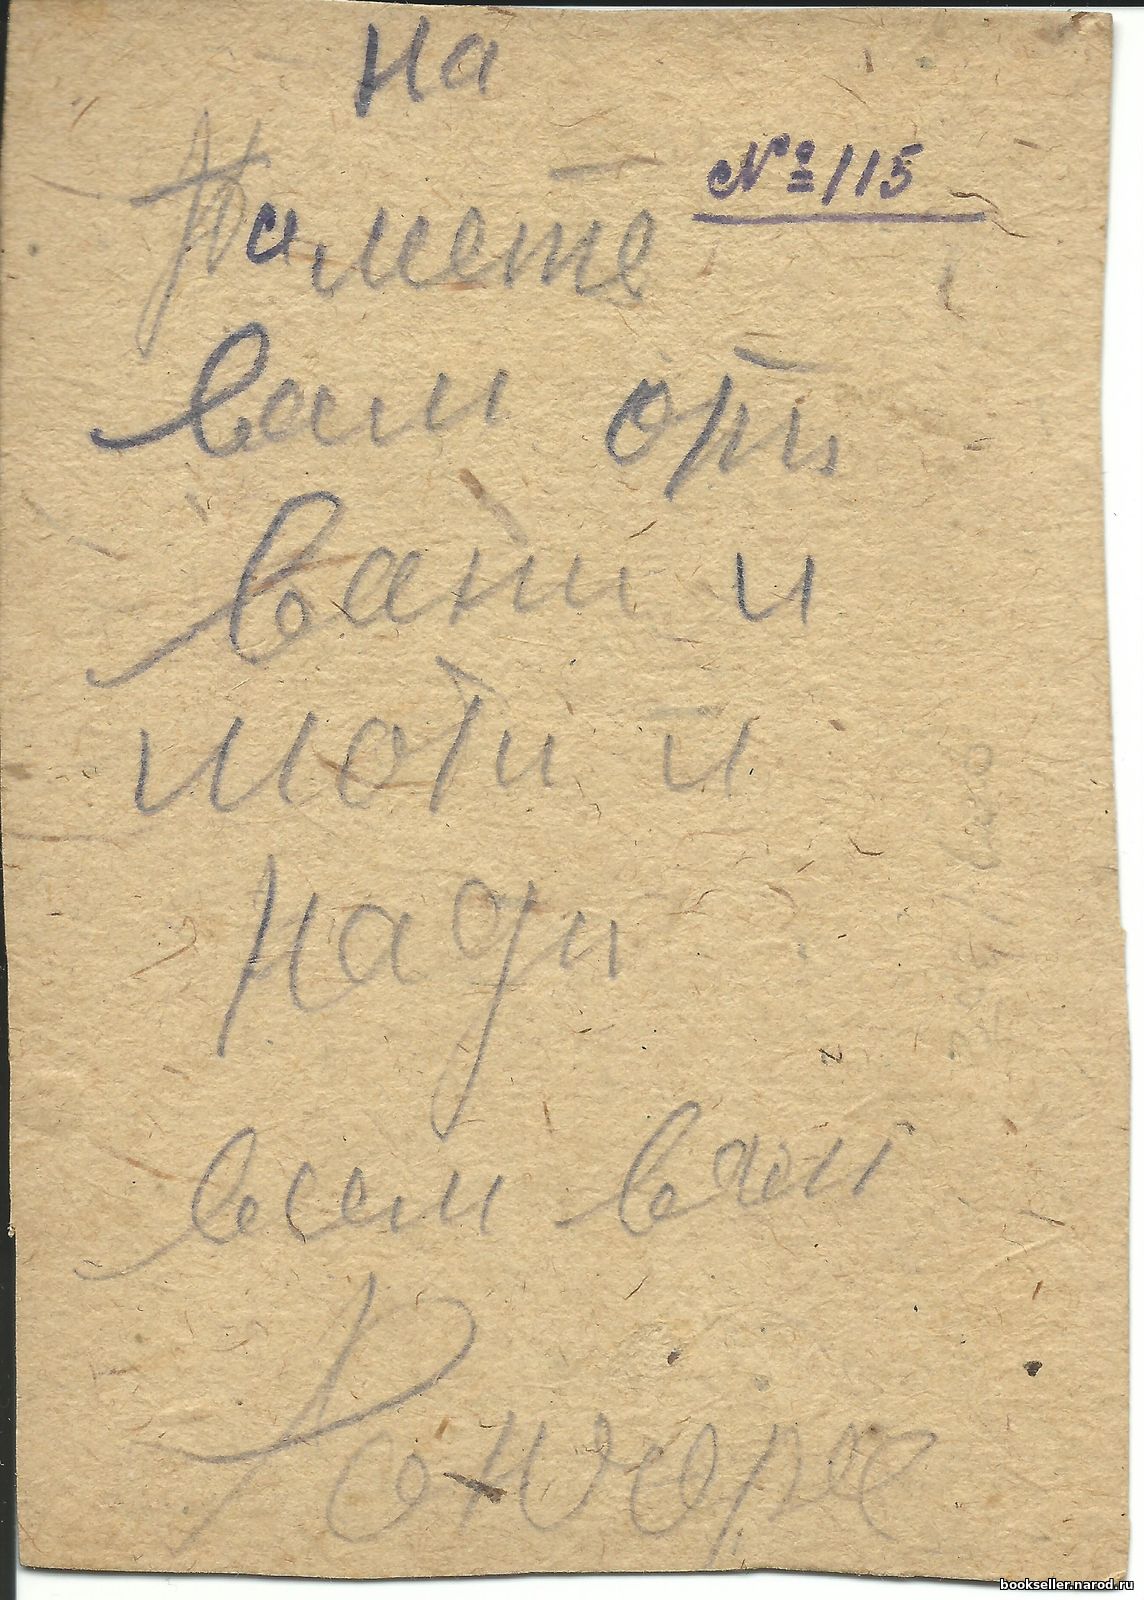 на
№115
Паметь
вам от
вани и
моти и
нади
всем вам
bookseller.narod.ru